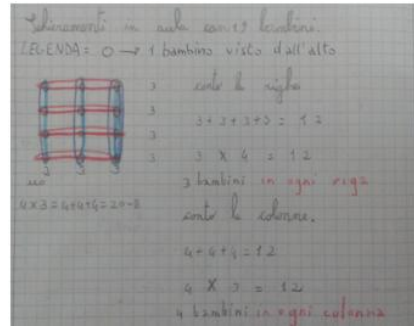 Schieramenti in aula con 12 bambini.
LEGENDA = O → 1 bambino visto dall'alto
conto le righe
3
3
3
3
3+3+3+3 = 12
3 x 4 = 12
3 bambini in ogni riga
4 x 3 = 4+4+4 =
conto le colonne.
4+4+4 = 12
4 x 3 = 12
4 bambini in ogni colonna